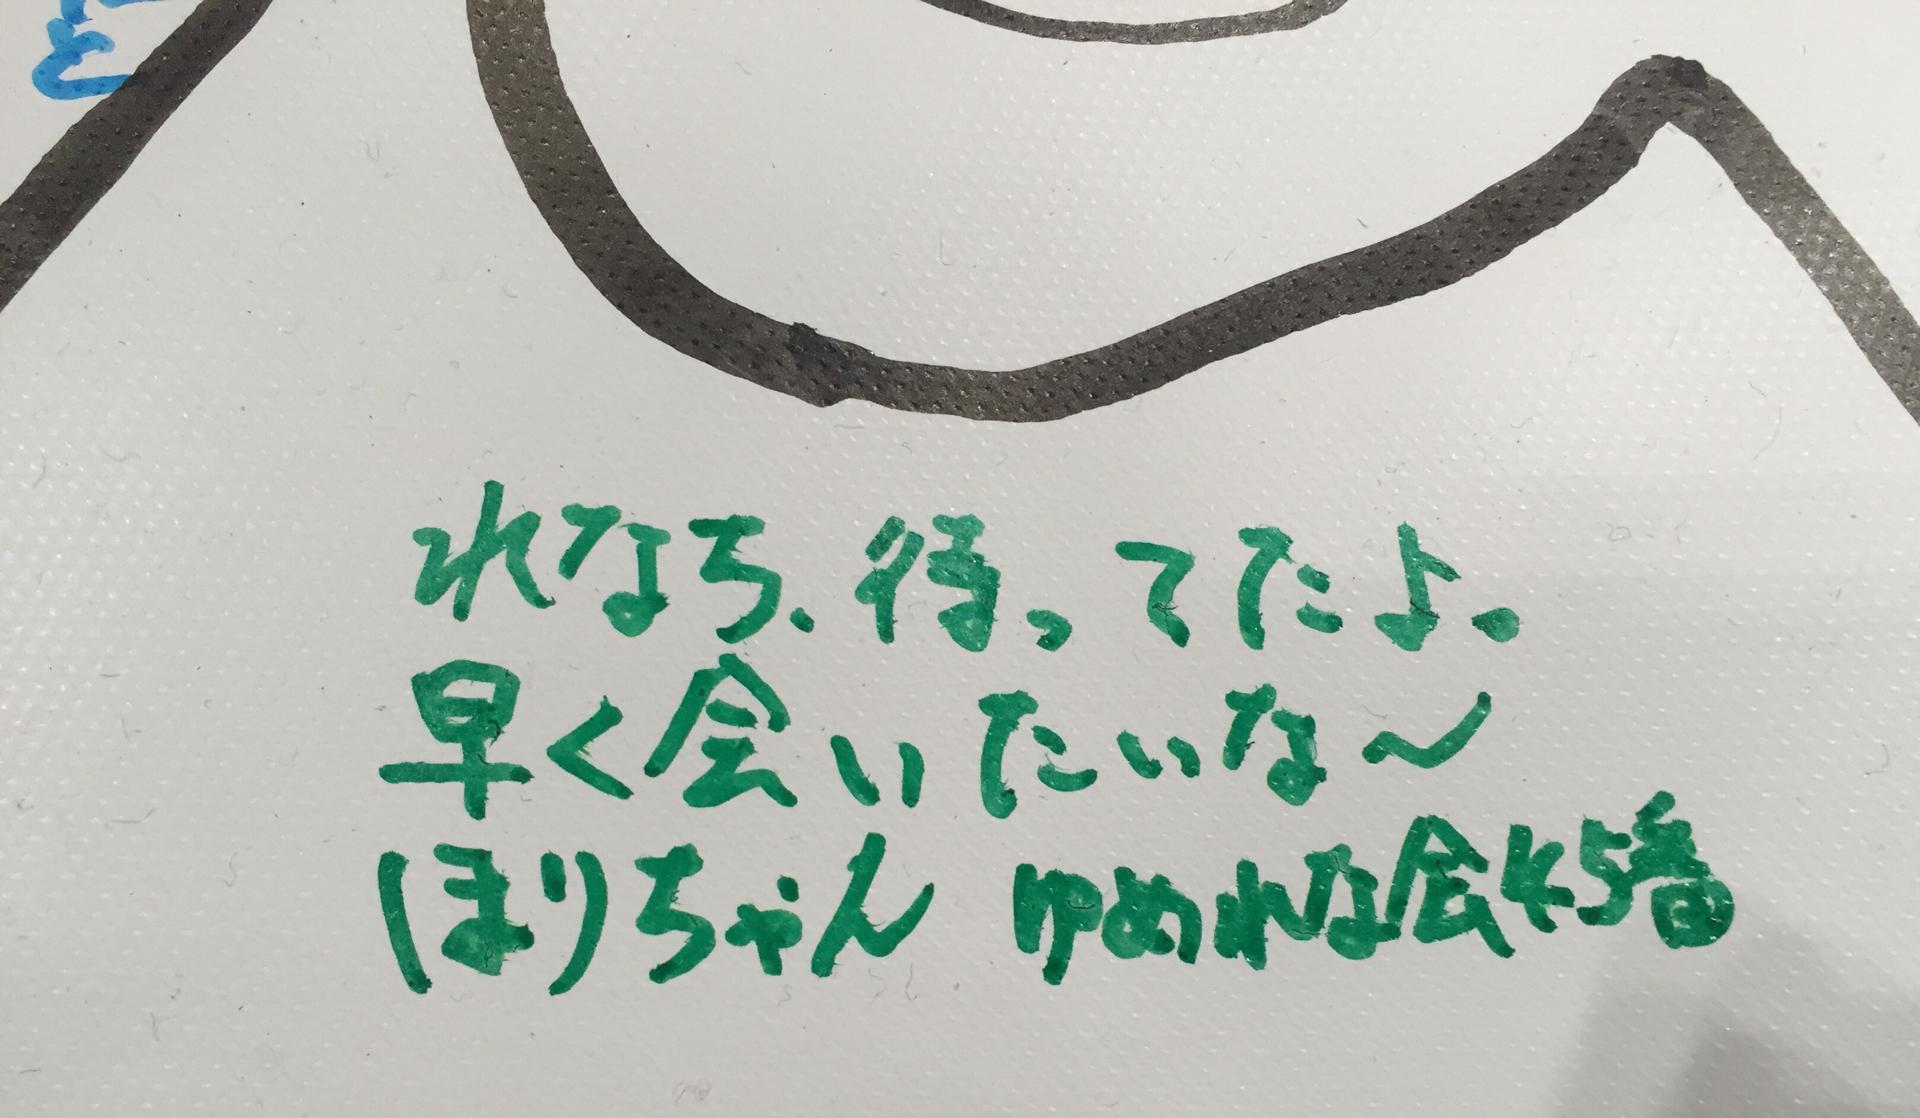 れなち、待ってたよ。
早く会いたいな～
ほりちゃん ゆめれな会45番